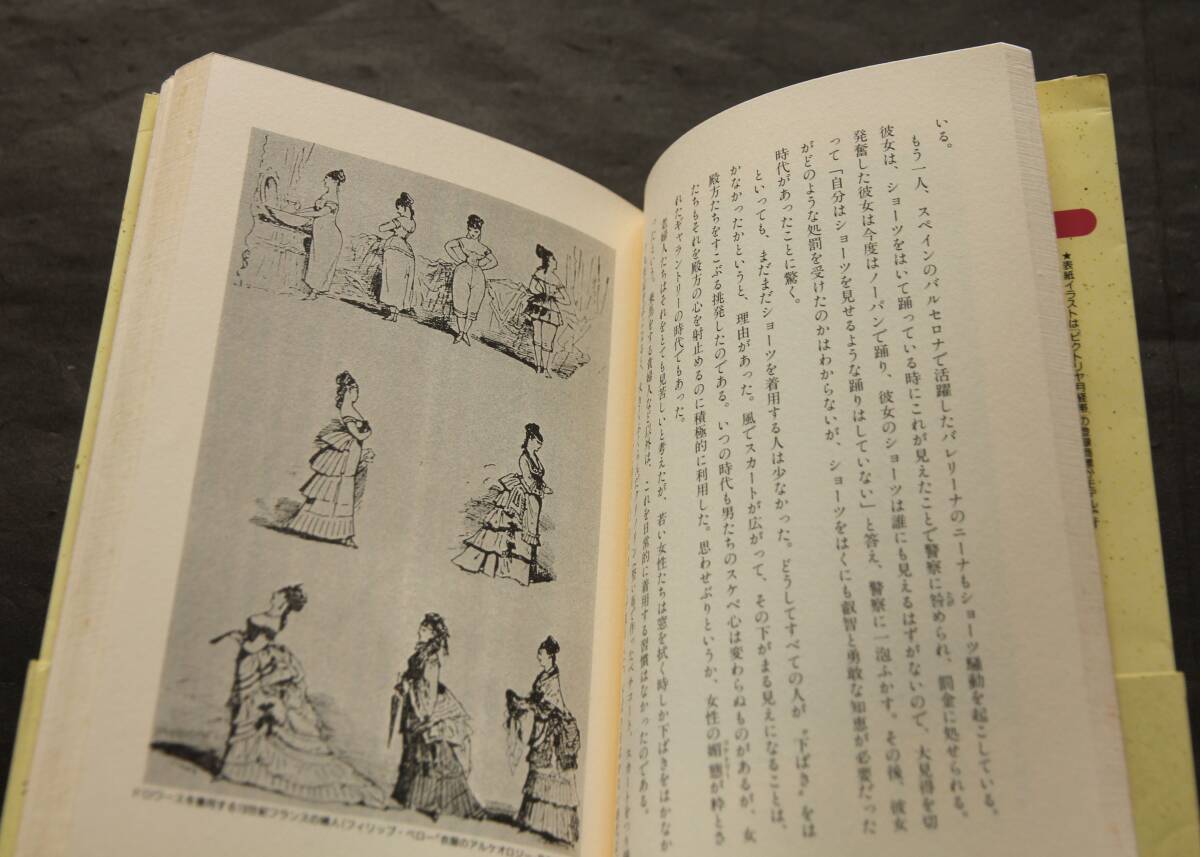 いる。
もう一人、スペインのバルセロナで活躍したバレリーナのニーナもショーツ騒動を起こしている。
彼女は、ショーツをはいて踊っている時にこれが見えたことで警察に咎められ、罰金に処せられる。
発奮した彼女は今度はノーパンで踊り、彼女のショーツは誰にも見えるはずがないので、大見得を切
って「自分はショーツを見せるような踊りはしていない」と答え、警察に一泡ふかす。その後、彼女
がどのような処罰を受けたのかはわからないが、ショーツをはくにも叡智と勇敢な知恵が必要だった
時代があったことに驚く。
といっても、まだまだショーツを着用する人は少なかった。どうしてすべての人が〝下ばき〟をは
かなかったかというと、理由があった。風でスカートが広がって、その下がまる見えになることは、
殿方たちをすこぶる挑発したのである。いつの時代も男たちのスケベ心は変わらぬものがあるが、女
たちもそれを殿方の心を射止めるのに積極的に利用した。思わせぶりというか、女性の媚態が粋とさ
れたギャラントリーの時代でもあった。
老婦人たちはそれをとても見苦しいと考えたが、若い女性たちは窓を拭く時しか下ばきをはかなか
乗馬をする貴婦人など以外は、これを日常的に着用する習慣はなかったのである。
ドロワースを着用する19世紀フランスの婦人(フィリップ・ペロー『衣服のアルケオロジー
★表紙イラストは「ビクトリヤ月経帯」の登録商標